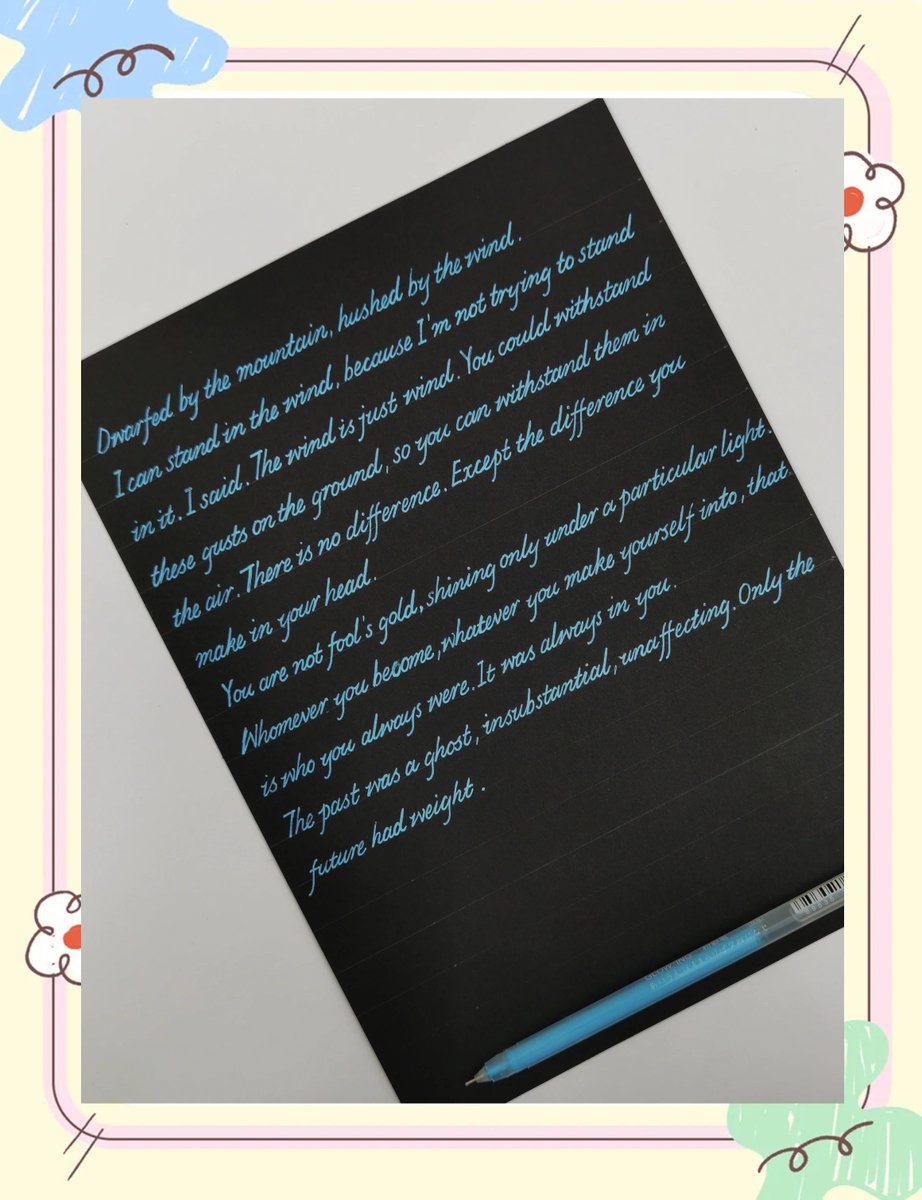 Dwarfed by the mountain, hushed by the wind.
I can stand in the wind, because I'm not trying to stand
in it. I said. The wind is just wind. You could withstand
these gusts on the ground, so you can withstand them in
the air. There is no difference. Except the difference you
make in your head.
You are not fool's gold, shining only under a particular light.
Whomever you become, whatever you make yourself into, that
is who you always were. It was always in you.
The past was a ghost, insubstantial, unaffecting. Only the
future had weight.